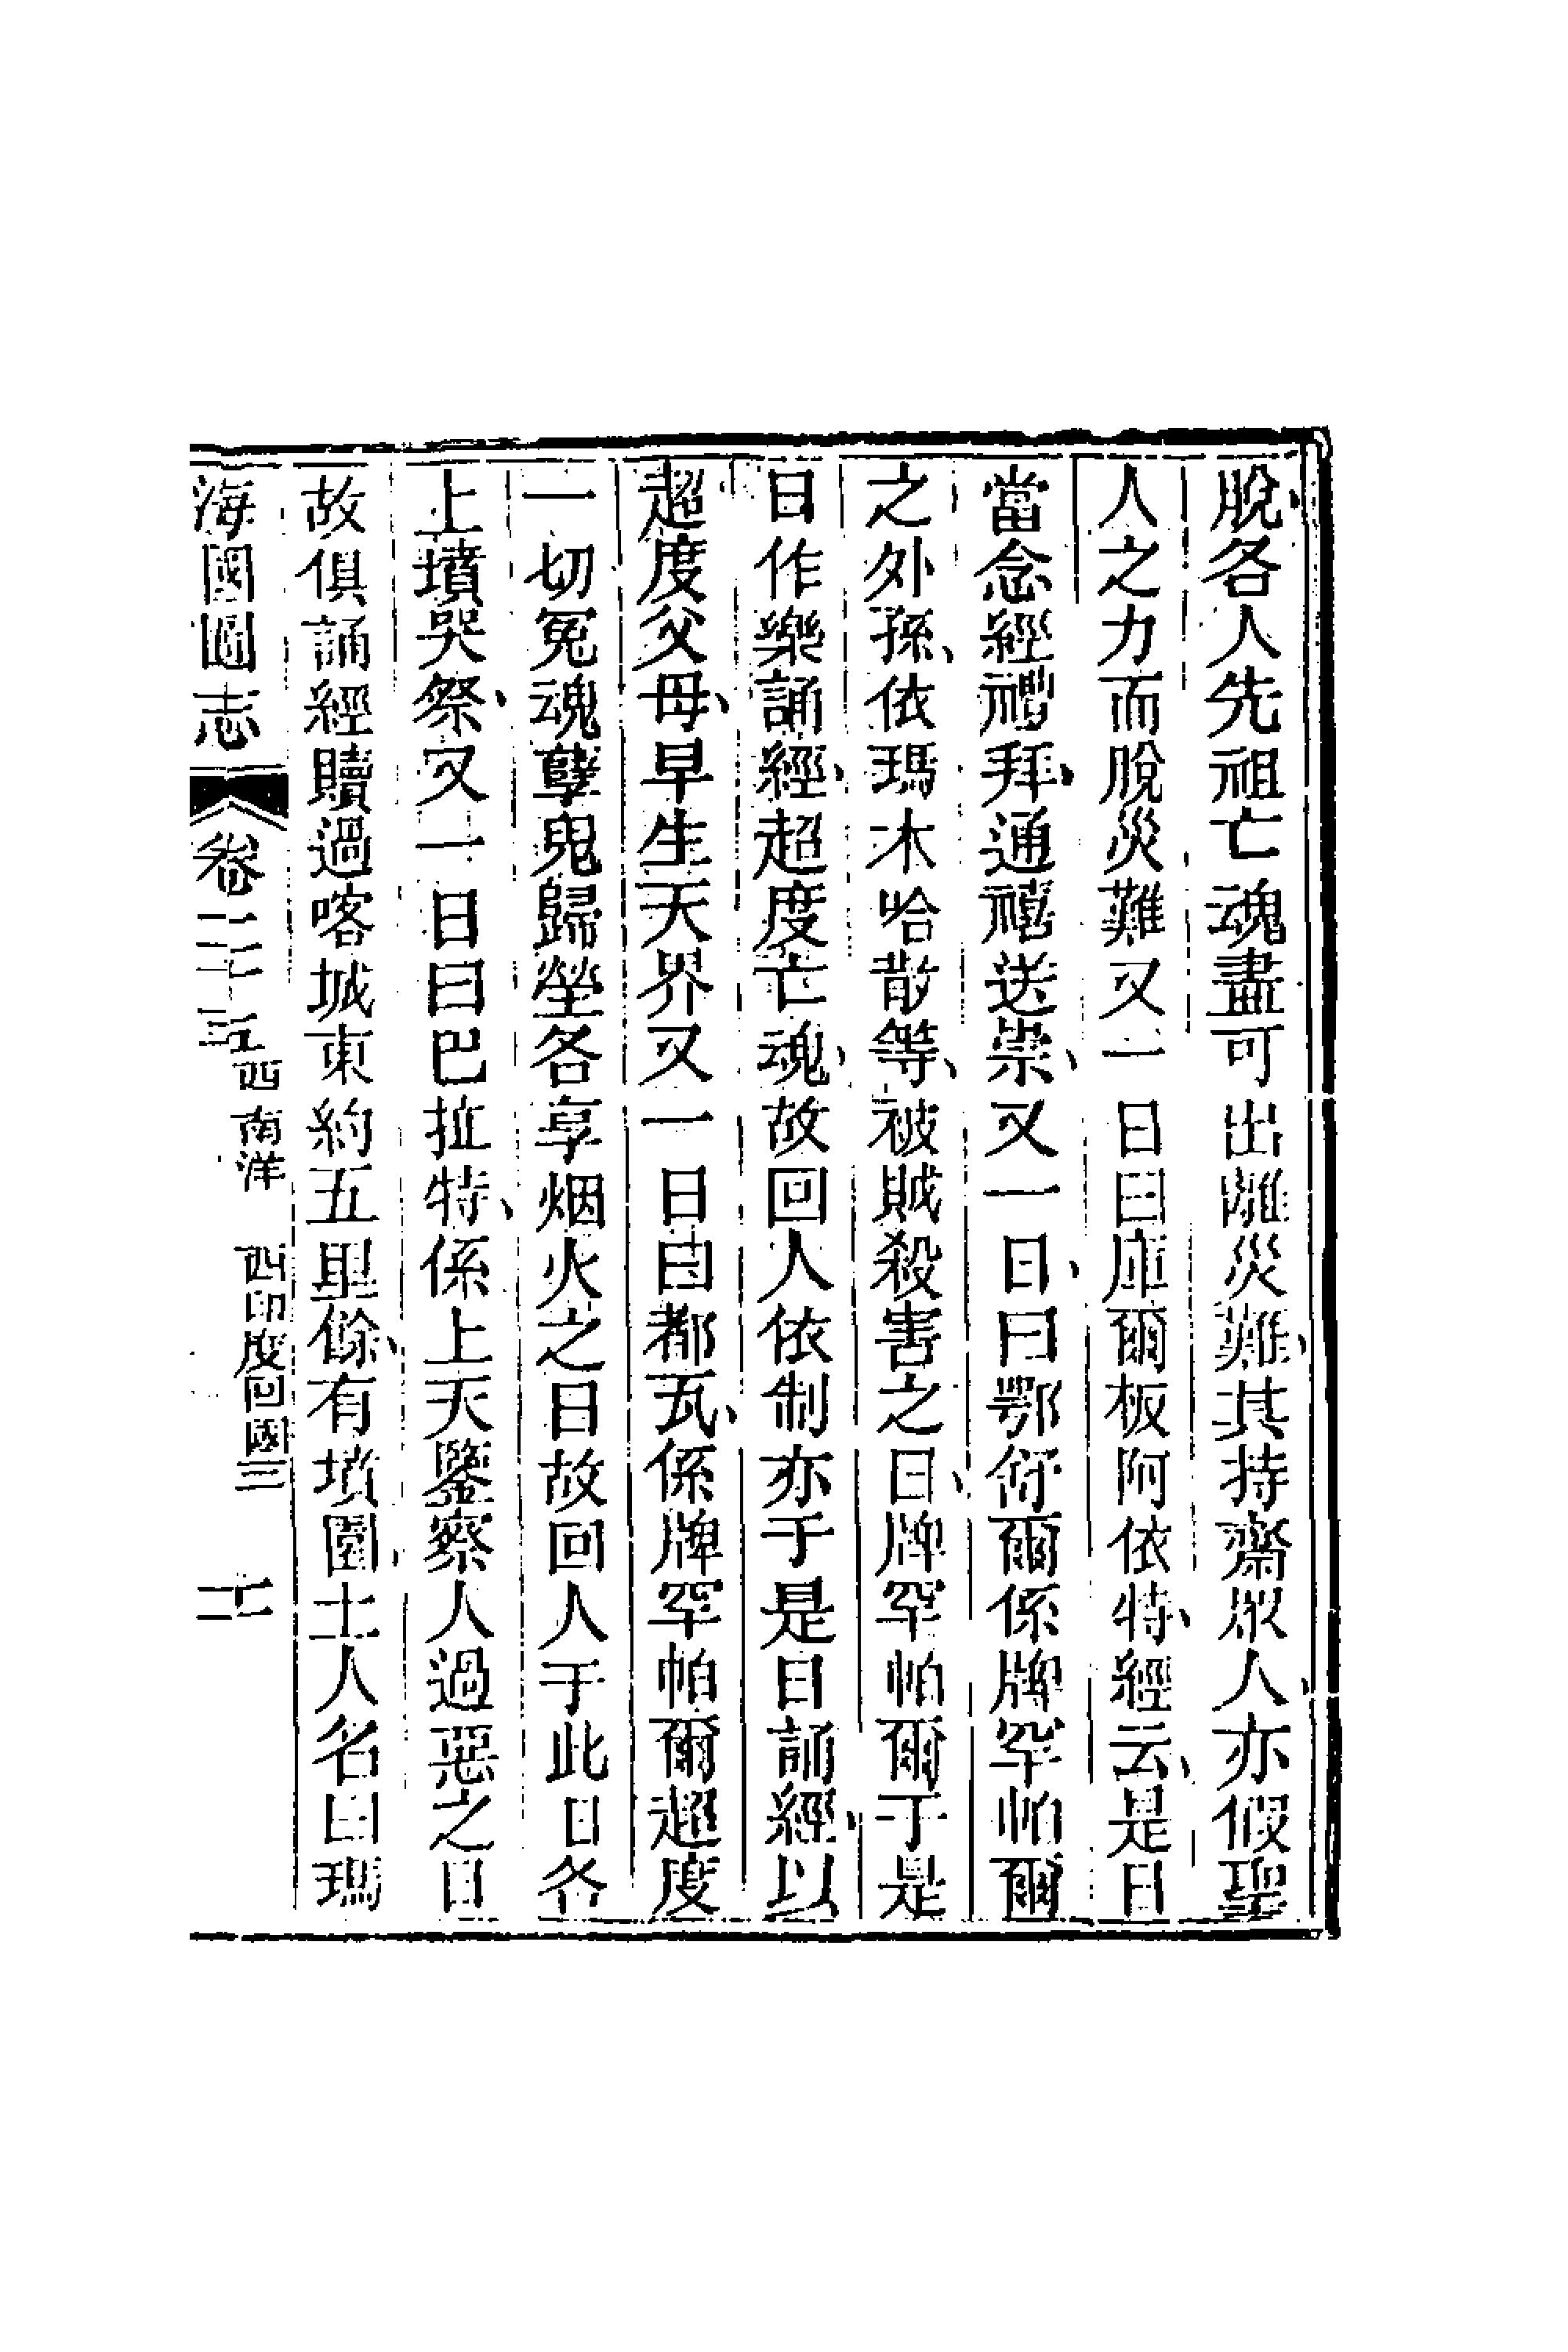 脫各人先祖亡魂盡可出離災難其持齋眾人亦假聖
人之力而脫災難又一日曰庫爾板阿依特經云是日
當念經禮拜通禧送祟又一日曰鄂舒爾係牌罕帕爾
之外孫依瑪木哈散等被賊殺害之日牌罕帕爾于是
日作樂誦經超度亡魂故回人依制亦于是日誦經以
超度父母早生天界又一日曰都瓦係牌罕帕爾超度
一切冤魂孽鬼歸塋各享烟火之日故回人于此日各
上墳哭祭又一日曰巴拉特係上天鑒察人過惡之日
故俱誦經贖過喀城東約五里餘有墳園土人名曰瑪
海國圖志 卷二十五 西南洋 西印度回國三